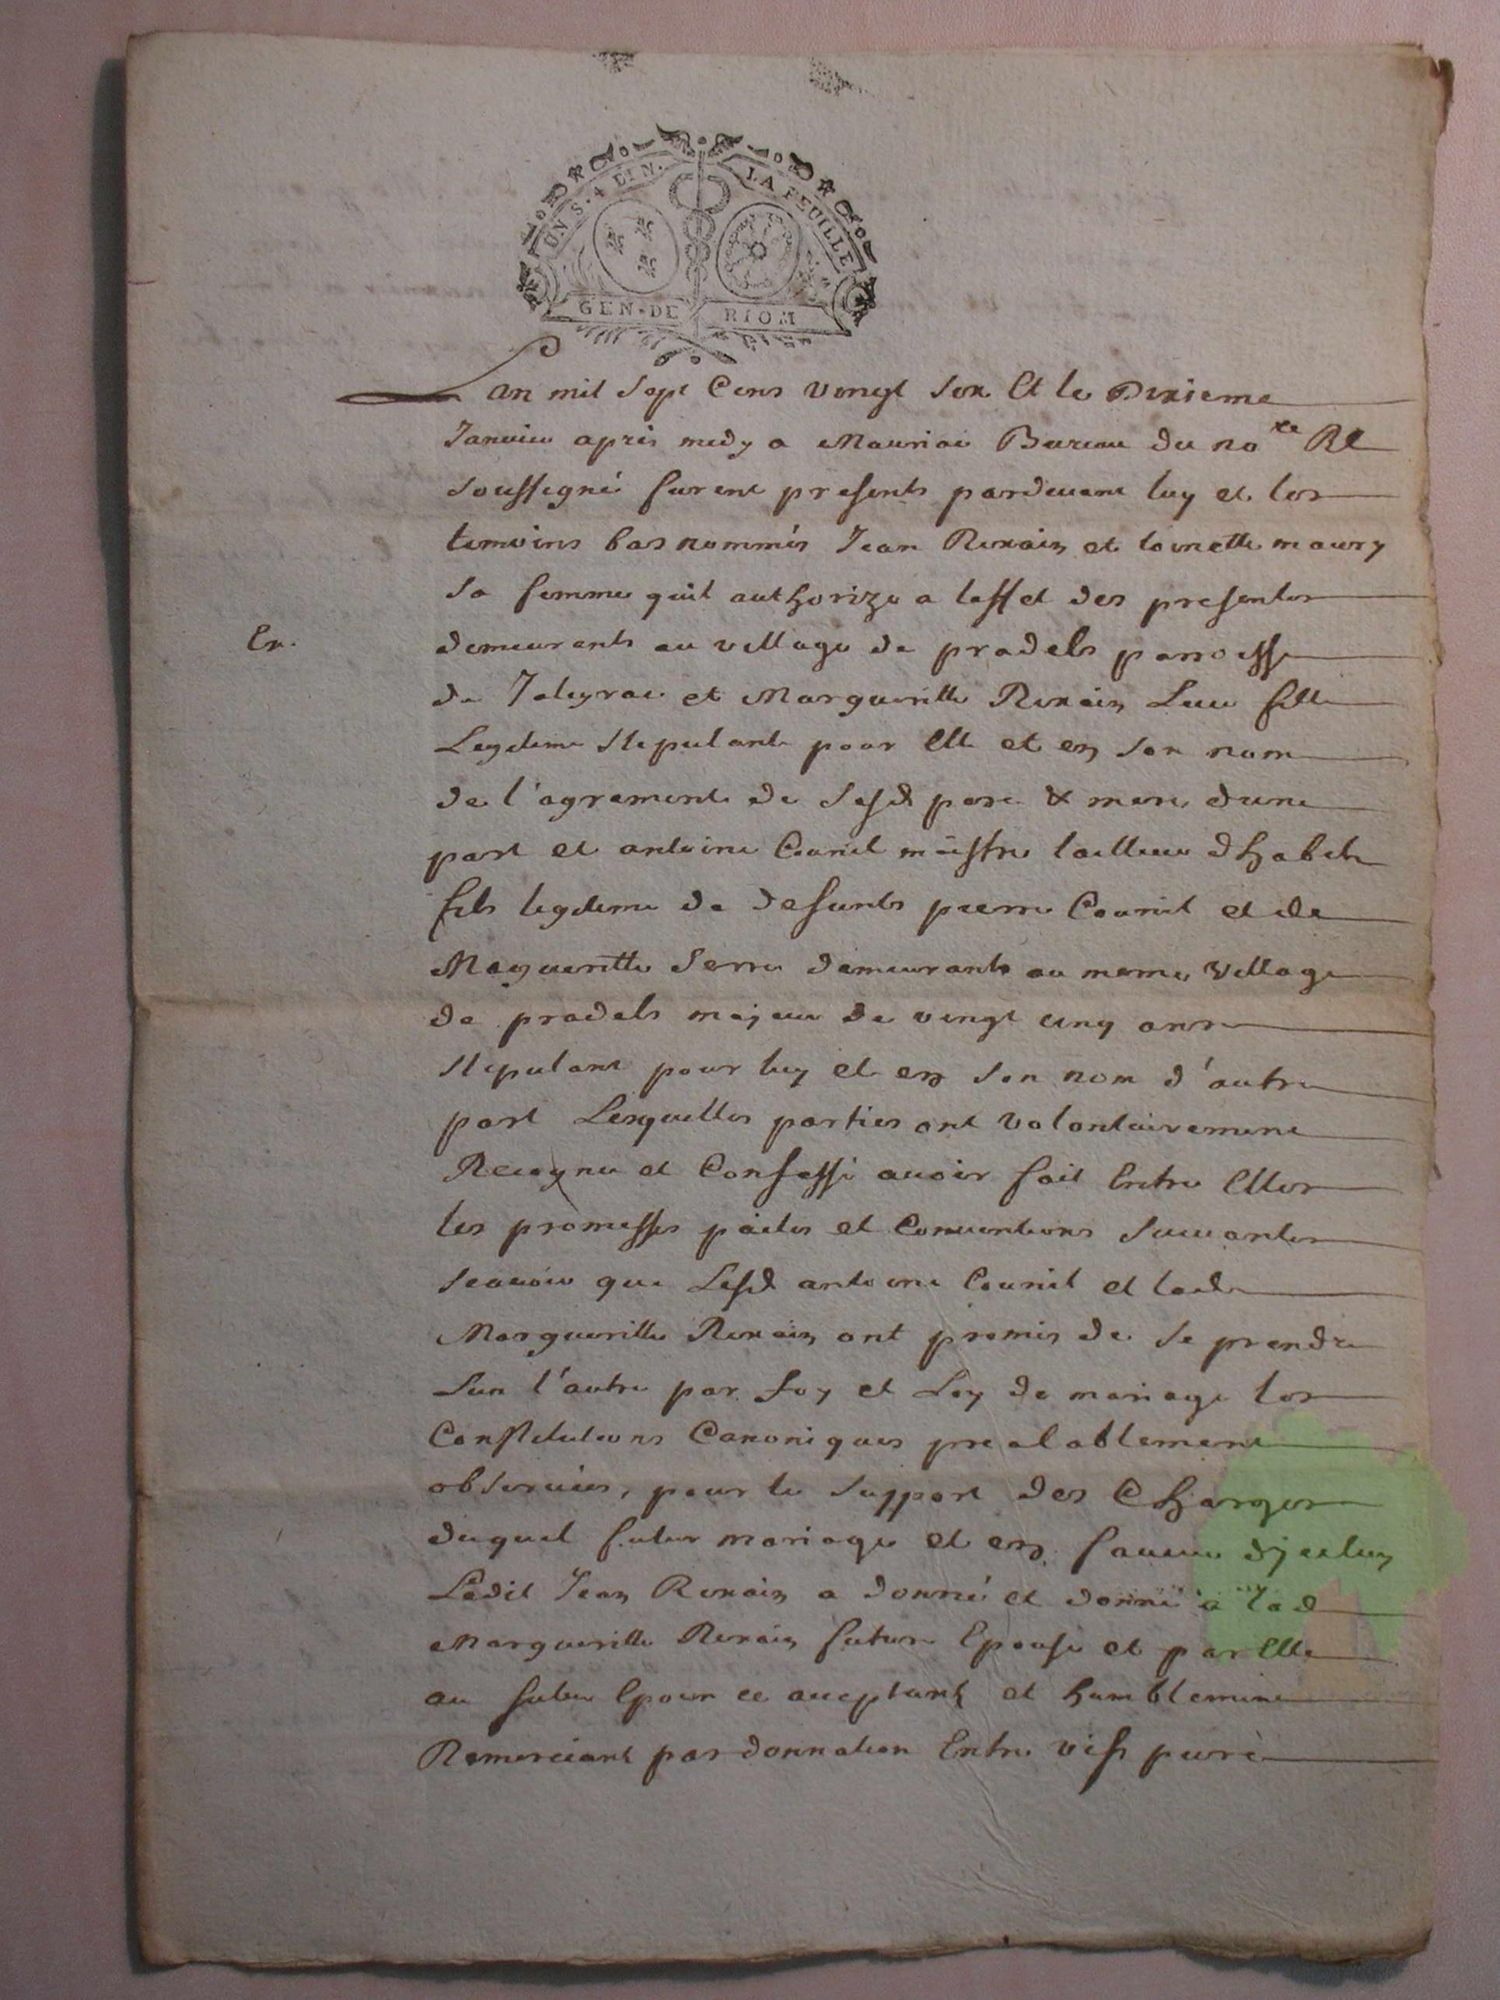 UN S. 4 DEN. LA FEUILLE
GEN. DE RIOM
Lan mil sept Cens vingt six Et le Dixieme
Janvier apres midy a Mauriac Bureau du no.re Rl
soussigné furent presents pardevant luy et les
temoins bas nommés Jean Rixain et toinette maury
sa femme quil authorize a leffet des presentes
En.
demeurants au village de pradels parroisse
de Jaleyrac et Margueritte Rixain Leur fille
Legitime stipulante pour Elle et en son nom
de l'agrement de sesd pere & mere d'une
part et antoine Counil maistre tailleur dhabits
fils legitime de defunts pierre Counil et de
Margueritte Serre demeurants au meme village
de pradels majeur de vingt cinq ans
stipulant pour luy et en son nom d'autre
part Lesquelles parties ont volontairement
Recognu et Confessé avoir fait Entre Elles
les promesses pactes et Conventions suivantes
scavoir que Lesd antoine Counil et lad
Margueritte Rixain ont promis de se prendre
Lun l'autre par foy et Loy de mariage les
Constitutions Canoniques prealablement
observées, pour le support des Charges
duquel futur mariage et en faveur dyceluy
Ledit Jean Rixain a donné et donne a lad
Margueritte Rixain future Epouse et par Elle
au futur Epoux ce acceptant et humblement
Remerciant par donnation Entre vifs pure